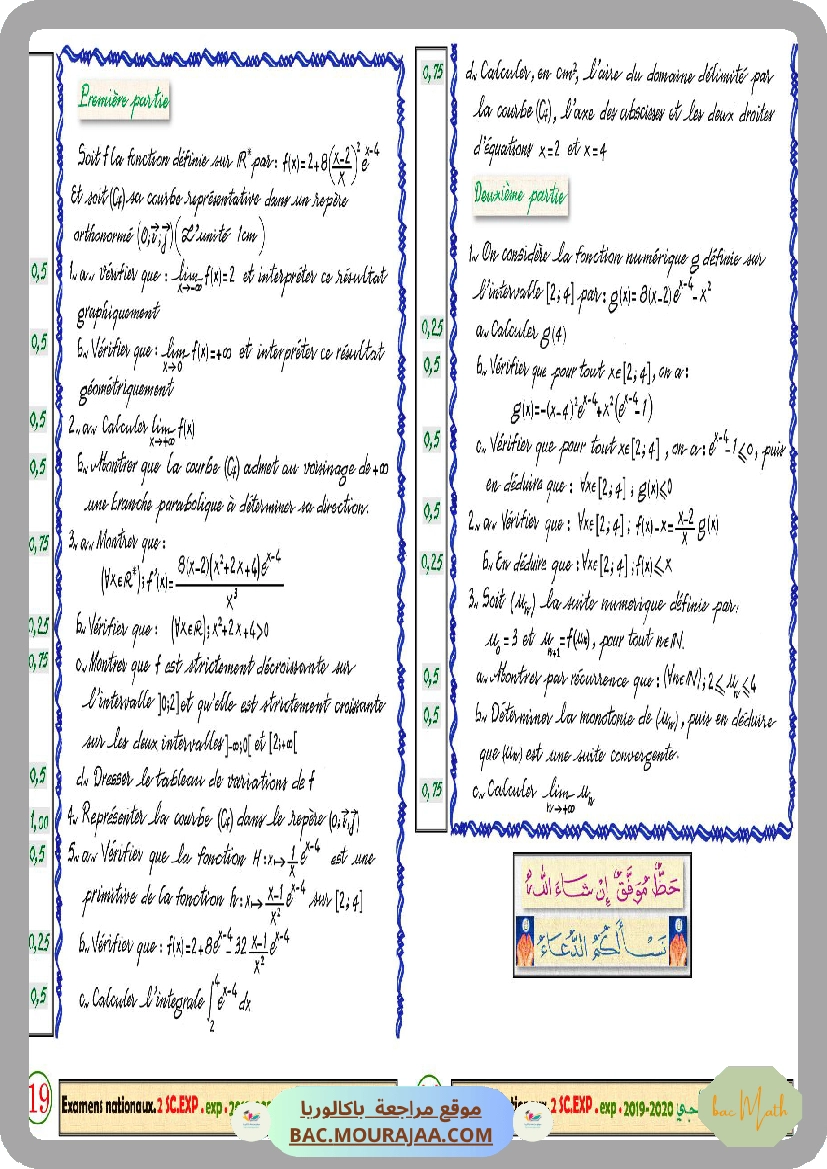 Première partie
Soit f la fonction définie sur ℝ* par : f(x)=2+8((x-2)/x)² e^(x-4)
Et soit (Cf) sa courbe représentative dans un repère
orthonormé (O;i⃗;j⃗) (L'unité 1cm)
0,5 1. a. Vérifier que : lim x→-∞ f(x)=2 et interpréter ce résultat
graphiquement
0,5 b. Vérifier que : lim x→0 f(x)=+∞ et interpréter ce résultat
géométriquement
0,5 2. a. Calculer lim x→+∞ f(x)
0,5 b. Montrer que la courbe (Cf) admet au voisinage de +∞
une branche parabolique à déterminer sa direction.
0,75 3. a. Montrer que :
(∀x∈ℝ*) ; f'(x)= 8(x-2)(x²+2x+4)e^(x-4) / x³
0,25 b. Vérifier que : (∀x∈ℝ) ; x²+2x+4>0
0,75 c. Montrer que f est strictement décroissante sur
l'intervalle ]0;2] et qu'elle est strictement croissante
sur les deux intervalles ]-∞;0[ et [2;+∞[
0,5 d. Dresser le tableau de variations de f
1,00 4. Représenter la courbe (Cf) dans le repère (O;i⃗;j⃗)
0,5 5. a. Vérifier que la fonction H : x↦ (1/x) e^(x-4) est une
primitive de la fonction h : x↦ ((x-1)/x²) e^(x-4) sur [2;4]
0,25 b. Vérifier que : f(x)=2+8e^(x-4)-32 ((x-1)/x²) e^(x-4)
0,5 c. Calculer l'integrale ∫₂⁴ e^(x-4) dx
0,75 d. Calculer, en cm², l'aire du domaine délimité par
la courbe (Cf), l'axe des abscisses et les deux droites
d'équations x=2 et x=4
Deuxième partie
1. On considère la fonction numérique g définie sur
l'intervalle [2;4] par : g(x)=8(x-2)e^(x-4)-x²
0,25 a. Calculer g(4)
0,5 b. Vérifier que pour tout x∈[2;4], on a :
g(x)=-(x-4)²e^(x-4)+x²(e^(x-4)-1)
0,5 c. Vérifier que pour tout x∈[2;4], on a : e^(x-4)-1⩽0, puis
en déduire que : ∀x∈[2;4] ; g(x)⩽0
0,5 2. a. Vérifier que : ∀x∈[2;4] ; f(x)-x= ((x-2)/x) g(x)
0,25 b. En déduire que : ∀x∈[2;4] ; f(x)⩽x
3. Soit (uₙ) la suite numerique définie par :
u₀=3 et uₙ₊₁=f(uₙ), pour tout n∈ℕ.
0,5 a. Montrer par récurrence que : (∀n∈ℕ) ; 2⩽uₙ⩽4
0,5 b. Déterminer la monotonie de (uₙ), puis en déduire
que (uₙ) est une suite convergente.
0,75 c. Calculer lim n→+∞ uₙ
حَظٌّ مُوَفَّقٌ إِنْ شَاءَ اللهُ
نَسْأَلُكُمُ الدُّعَاءَ
19 Examens nationaux.2 SC.EXP . exp .
2 SC.EXP . exp . 2019-2020
موقع مراجعة باكالوريا
BAC.MOURAJAA.COM
bac Math